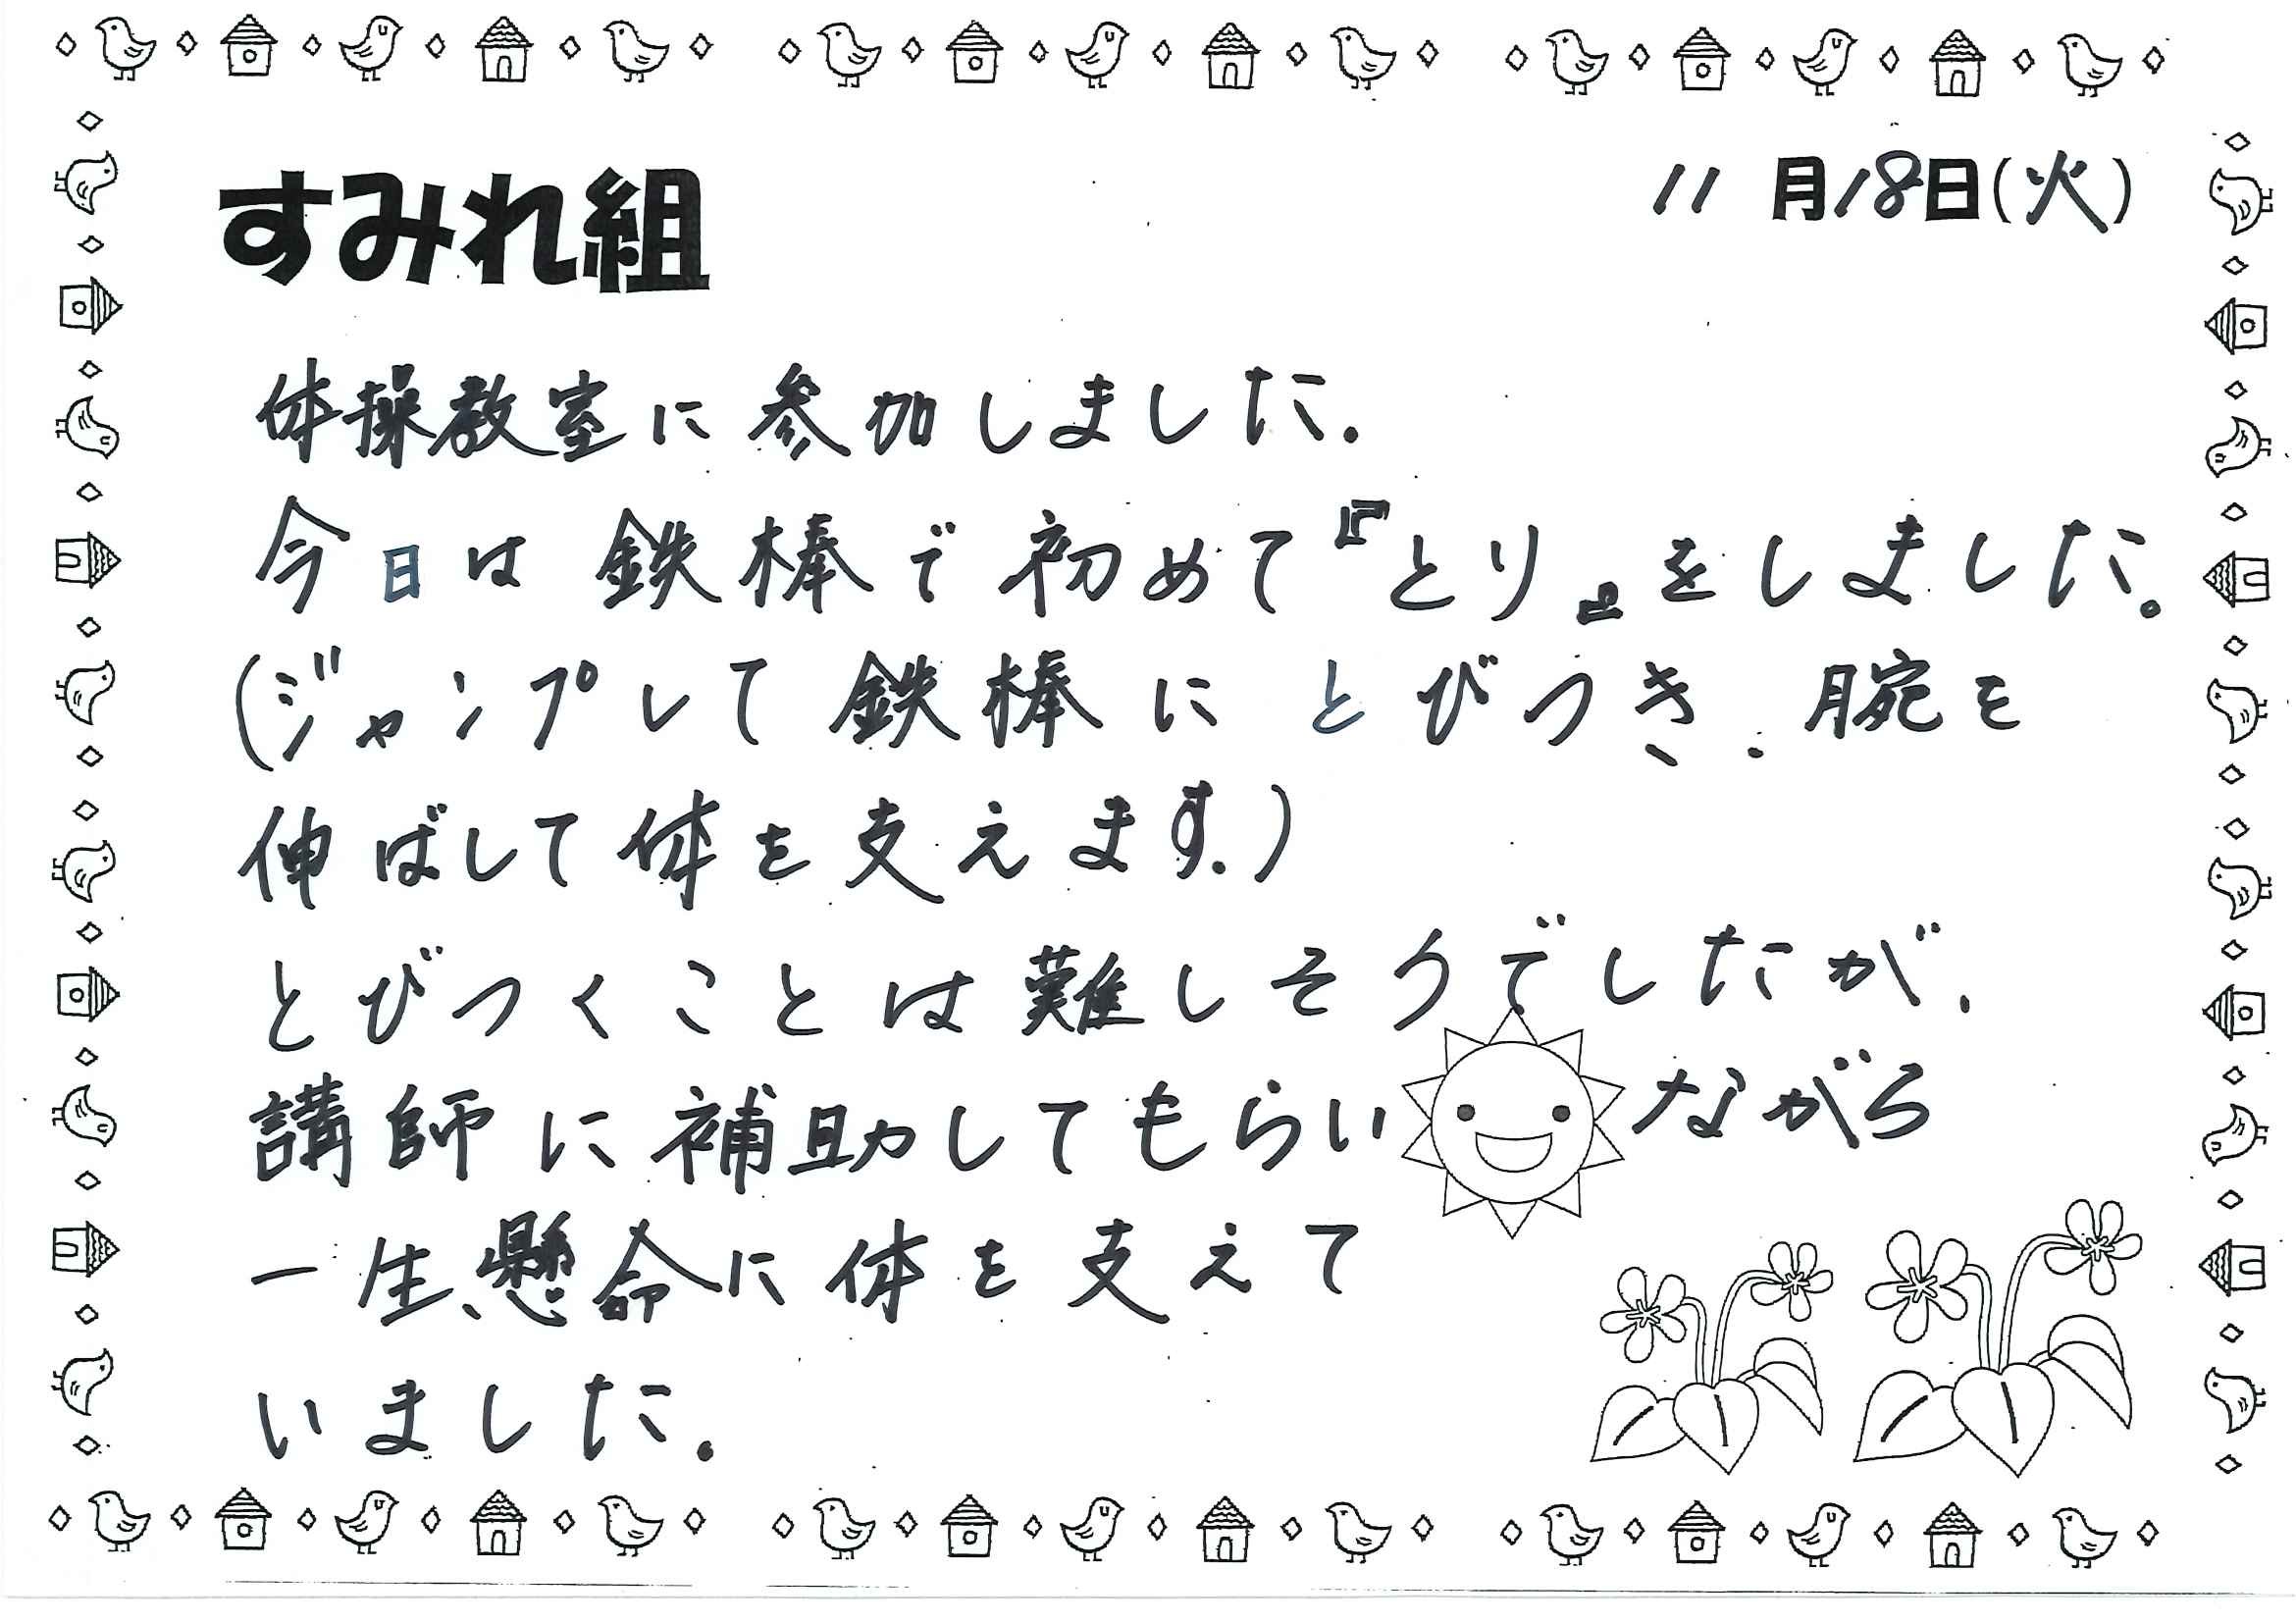 すみれ組
11月18日(火)
体操教室に参加しました。
今日は鉄棒で初めて『とり』をしました。
(ジャンプして鉄棒にとびつき、腕を
伸ばして体を支えます。)
とびつくことは難しそうでしたが、
講師に補助してもらいながら
一生懸命に体を支えて
いました。